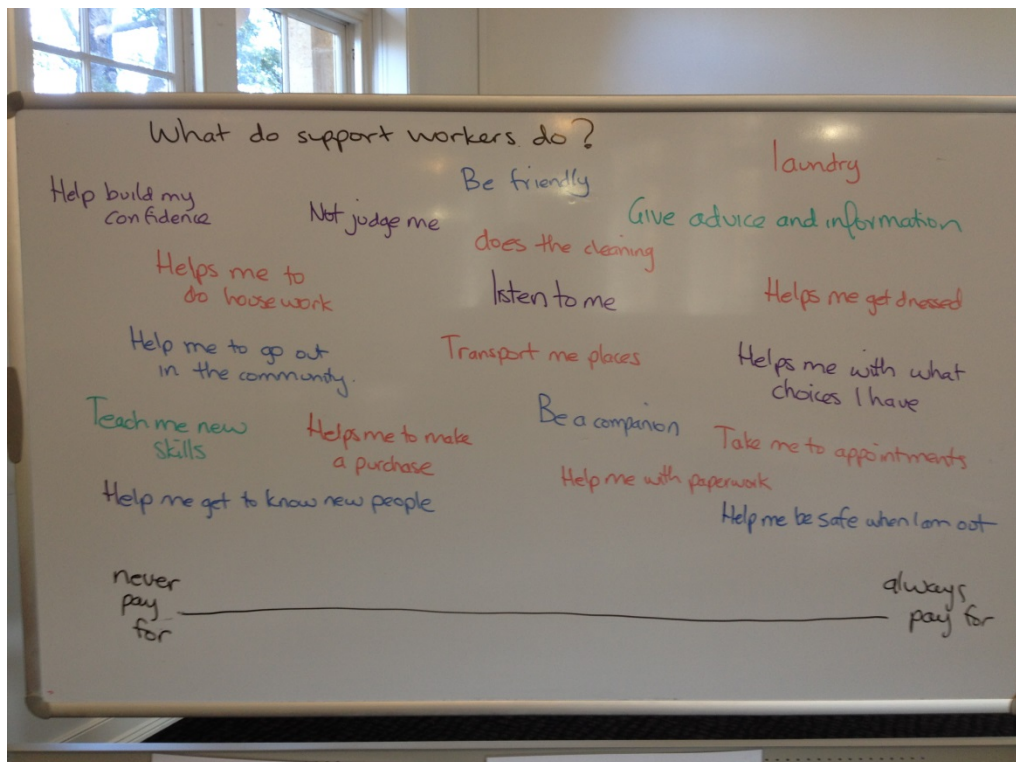 What do support workers do?
laundry
Be friendly
Help build my
confidence
Not judge me
Give advice and information
does the cleaning
Helps me to
do housework
listen to me
Helps me get dressed
Help me to go out
in the community.
Transport me places
Helps me with what
choices I have
Teach me new
skills
Helps me to make
a purchase
Be a companion
Take me to appointments
Help me with paperwork
Help me get to know new people
Help me be safe when I am out
never
pay
for
always
pay for